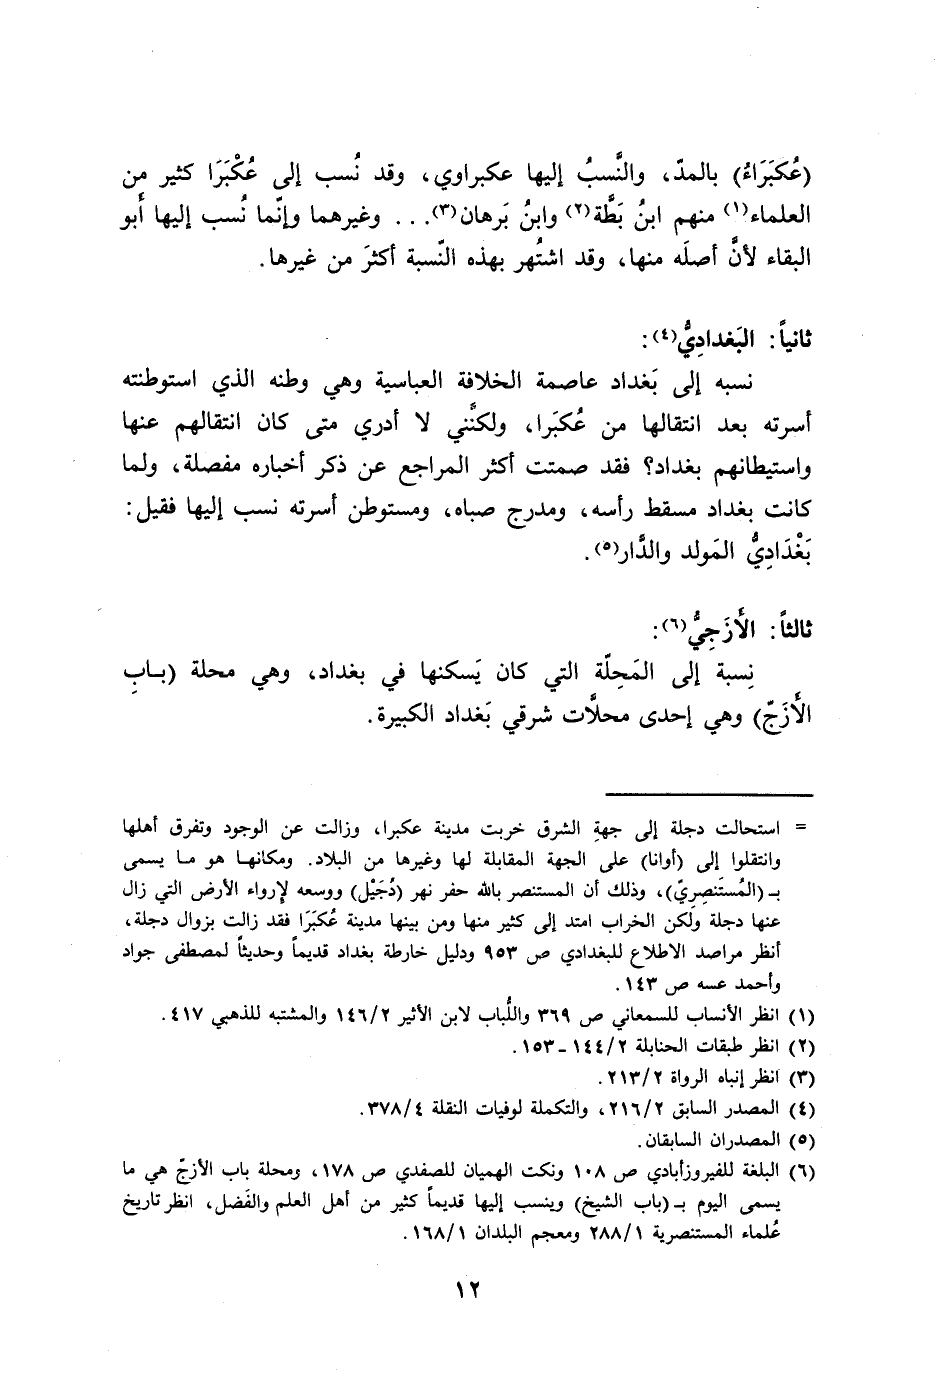 (عُكبَرَاءُ) بالمدّ، والنَّسبُ إليها عكبراوي، وقد نُسب إلى عُكْبَرَا كثير من
العلماء(١) منهم ابنُ بَطَّة(٢) وابنُ بَرهان(٣). . . وغيرهما وإنّما نُسب إليها أَبو
البقاء لأنَّ أصلَه منها، وقد اشتُهر بهذه النّسبة أكثرَ من غيرها.
ثانياً: البَغدادِيُّ(٤):
نسبه إلى بَغداد عاصمة الخلافة العباسية وهي وطنه الذي استوطنته
أسرته بعد انتقالها من عُكبَرا، ولكنَّني لا أدري متى كان انتقالهم عنها
واستيطانهم بغداد؟ فقد صمتت أكثر المراجع عن ذكر أخباره مفصلة، ولما
كانت بغداد مسقط رأسه، ومدرج صباه، ومستوطن أسرته نسب إليها فقيل:
بَغْدَادِيُّ المَولد والدَّار(٥).
ثالثاً: الأَزَجِيُّ(٦):
نِسبة إلى المَحِلّة التي كان يَسكنها في بغداد، وهي محلة (بـابِ
الأَزَجّ) وهي إحدى محلاَّت شرقي بَغداد الكبيرة.
= استحالت دجلة إلى جهةِ الشرق خربت مدينة عكبرا، وزالت عن الوجود وتفرق أهلها
وانتقلوا إلى (أوانا) على الجهة المقابلة لها وغيرها من البلاد. ومكانهـا هو مـا يسمى
بـ (المُستَنصِريّ)، وذلك أن المستنصر بالله حفر نهر (دُجَيْل) ووسعه لإرواء الأرض التي زال
عنها دجلة ولكن الخراب امتد إلى كثير منها ومن بينها مدينة عُكبَرَا فقد زالت بزوال دجلة،
أنظر مراصد الاطلاع للبغدادي ص ٩٥٣ ودليل خارطة بغداد قديماً وحديثاً لمصطفى جواد
وأحمد عسه ص ١٤٣.
(١) انظر الأنساب للسمعاني ص ٣٦٩ واللُّباب لابن الأثير ١٤٦/٢ والمشتبه للذهبي ٤١٧.
(٢) انظر طبقات الحنابلة ١٤٤/٢ - ١٥٣.
(٣) انظر إنباه الرواة ٢١٣/٢.
(٤) المصدر السابق ٢١٦/٢، والتكملة لوفيات النقلة ٣٧٨/٤.
(٥) المصدران السابقان.
(٦) البلغة للفيروزأبادي ص ١٠٨ ونكت الهميان للصفدي ص ١٧٨، ومحلة باب الأزجّ هي ما
يسمى اليوم بـ (باب الشيخ) وينسب إليها قديماً كثير من أهل العلم والفَضل، انظر تاريخ
عُلماء المستنصرية ٢٨٨/١ ومعجم البلدان ١٦٨/١.
١٢